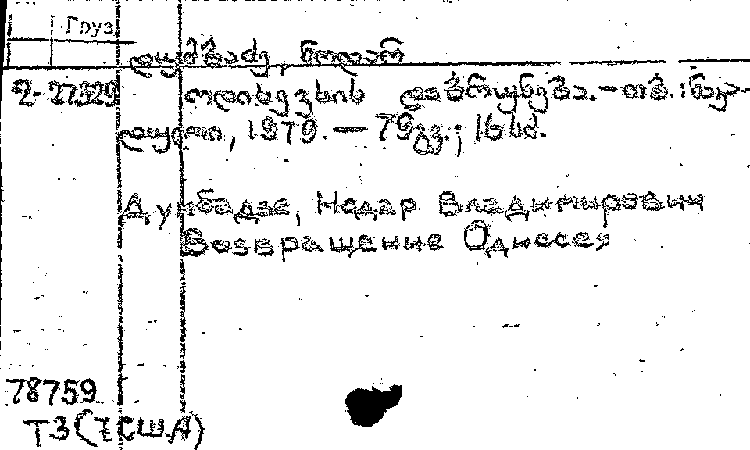 Груз
დუმბაძე, ნოდარ
2-27329
ოდისევსის დაბრუნება. – თბ.: ნაკა-
დული, 1979. — 79გვ.; 16სმ.
Думбадзе, Нодар Владимирович
Возвращение Одиссея
78759
Т3(7США)